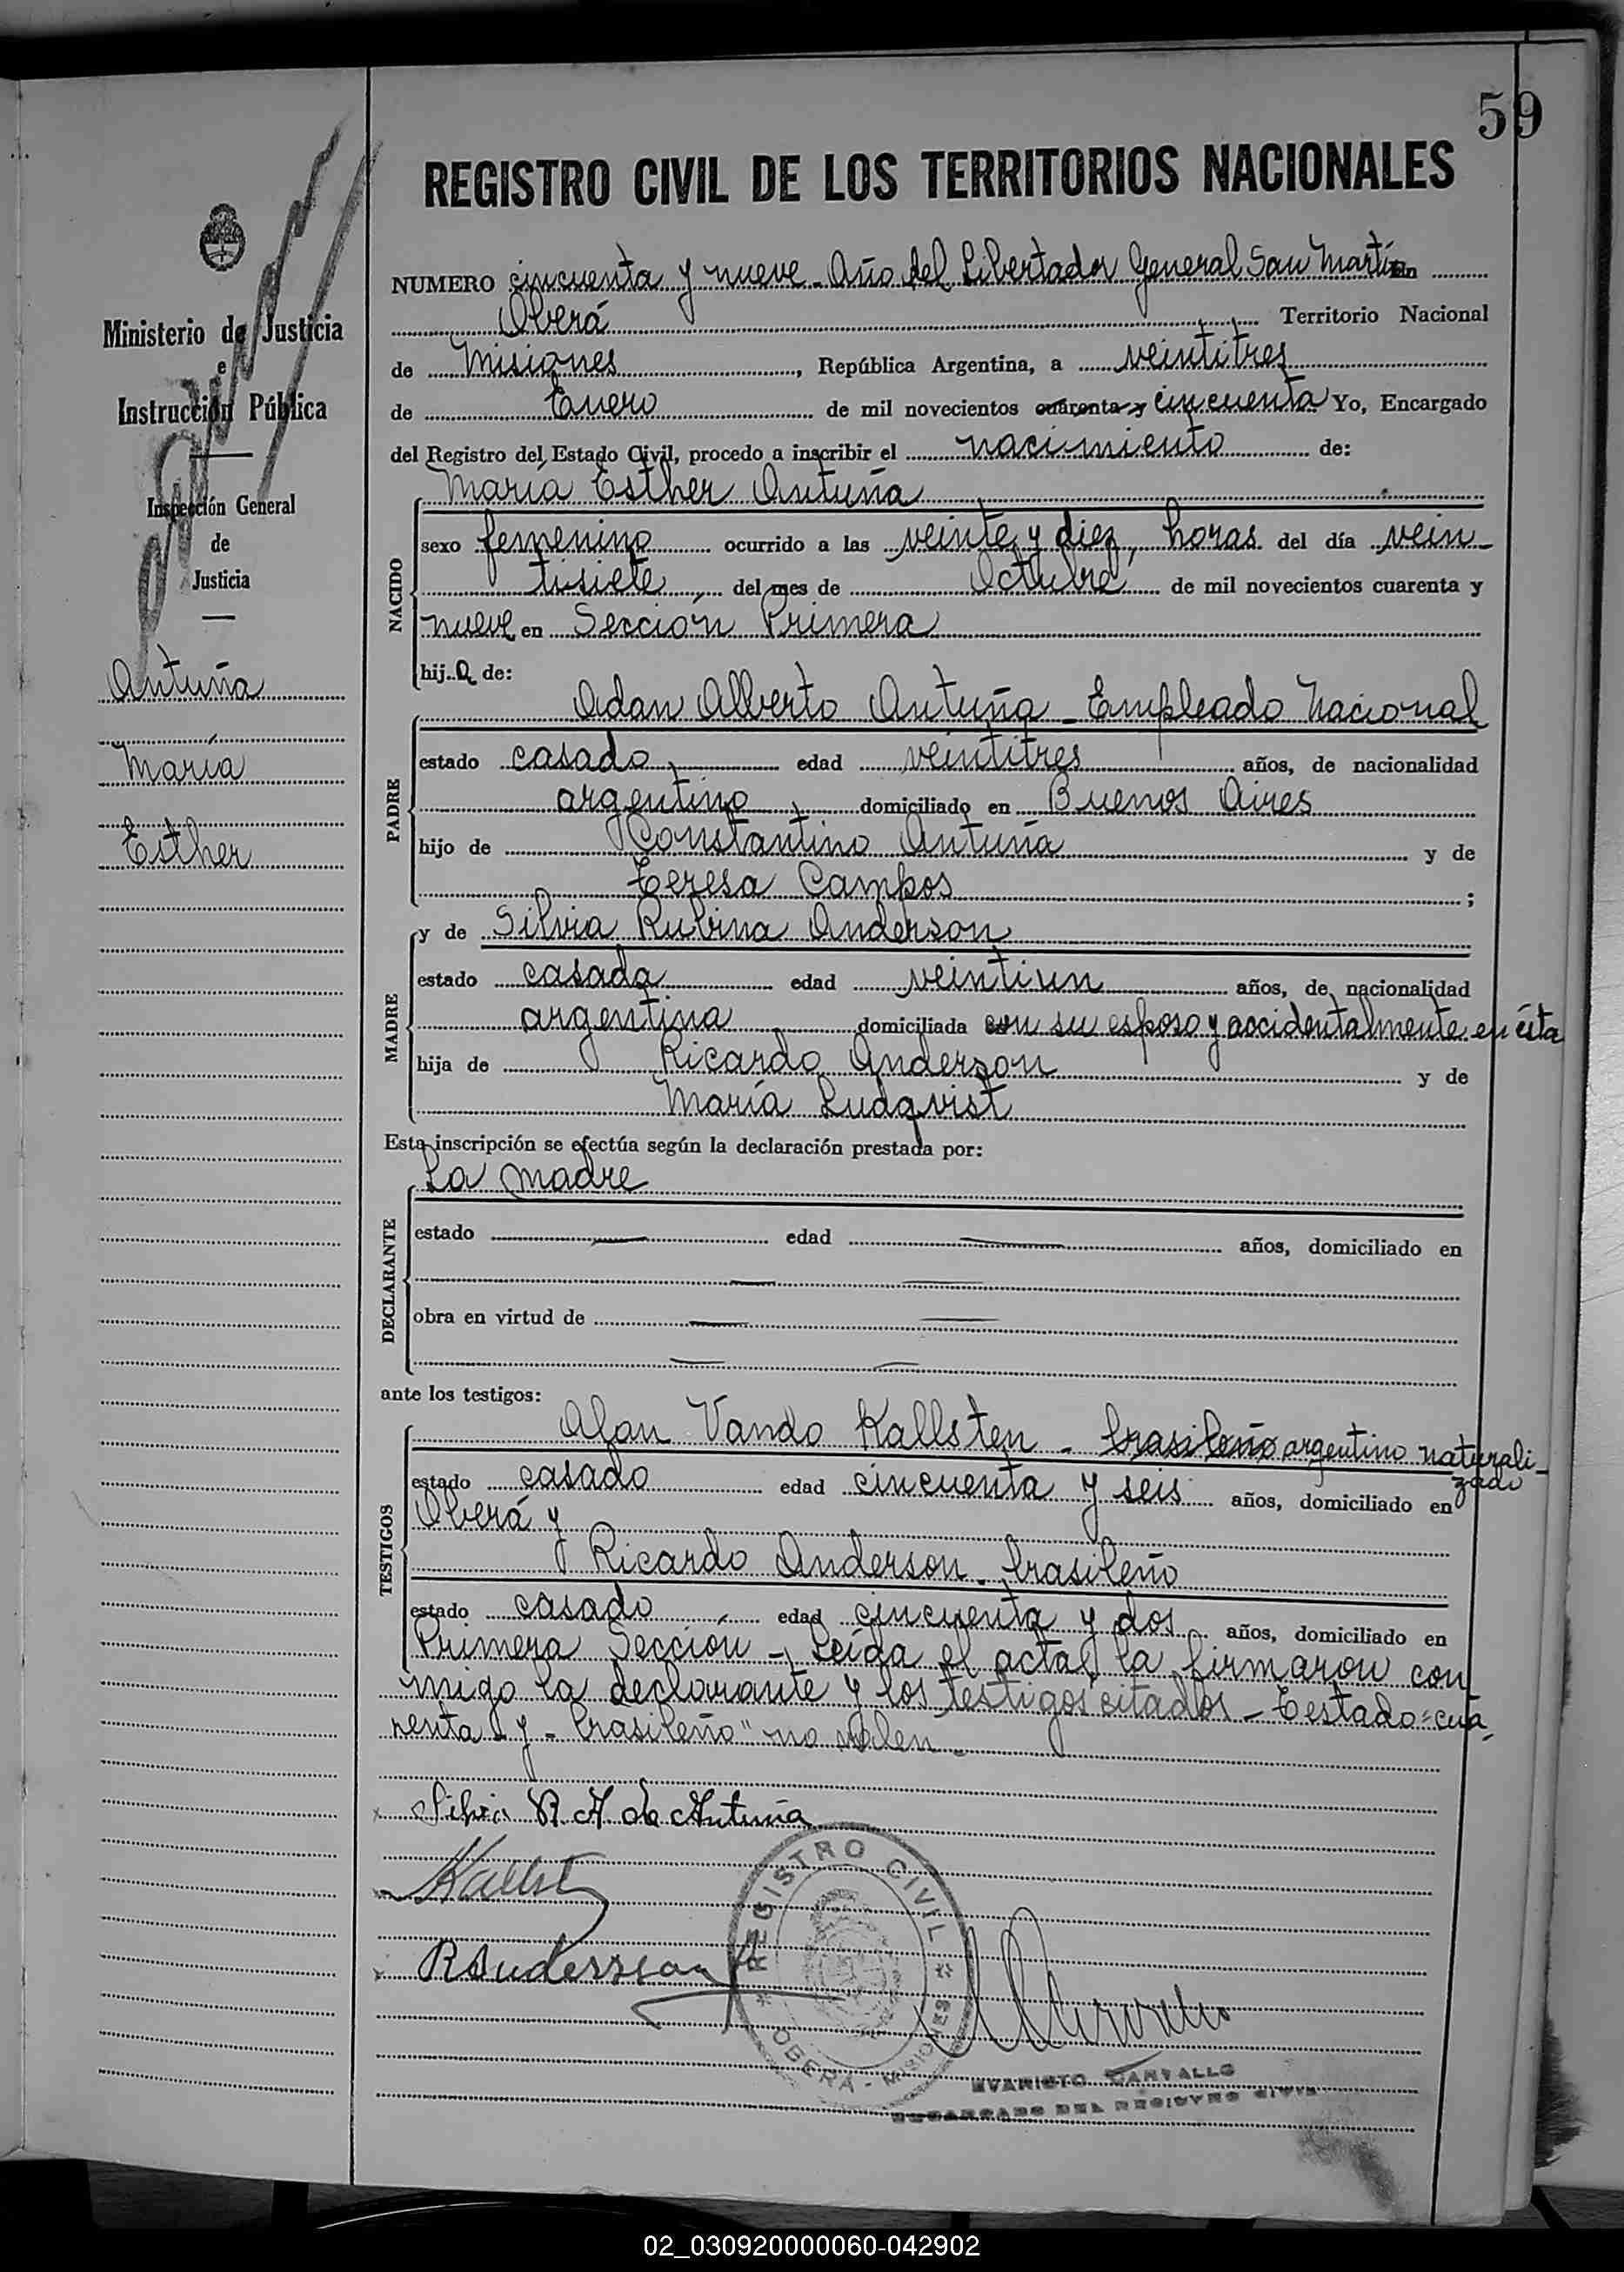 59
REGISTRO CIVIL DE LOS TERRITORIOS NACIONALES
NUMERO cincuenta y nueve - Año del Libertador General San Martín En
Oberá Territorio Nacional
de Misiones, República Argentina, a veintitres
de Enero de mil novecientos cuarenta y cincuenta Yo, Encargado
del Registro del Estado Civil, procedo a inscribir el nacimiento de:
María Esther Antuña
NACIDO
sexo femenino ocurrido a las veinte y diez, horas del día vein-
tisiete, del mes de Octubre de mil novecientos cuarenta y
nueve en Sección Primera
hija de:
PADRE
Adan Alberto Antuña - Empleado Nacional
estado casado, edad veintitres años, de nacionalidad
argentino domiciliado en Buenos Aires
hijo de Constantino Antuña y de
Teresa Campos ;
MADRE
y de Silvia Rubina Anderson
estado casada edad veintiun años, de nacionalidad
argentina domiciliada con su esposo y accidentalmente en ésta
hija de Ricardo Anderson y de
María Ludqvist
Esta inscripción se efectúa según la declaración prestada por:
La madre
DECLARANTE
estado — edad — años, domiciliado en
— —
obra en virtud de — —
— —
ante los testigos:
TESTIGOS
Alan Vando Kallsten - brasileño argentino naturali-
zado
estado casado edad cincuenta y seis años, domiciliado en
Oberá y
Ricardo Anderson - brasileño
estado casado, edad cincuenta y dos años, domiciliado en
Primera Sección - Leída el acta, la firmaron con
migo la declarante y los testigos citados - Testado "cua-
renta y - brasileño" no valen -
x Silvia R. A. de Antuña
x Kallst
x R Anderson
REGISTRO CIVIL
* OBERA - MISIONES *
EVARISTO CARVALLO
ENCARGADO DEL REGISTRO CIVIL
Ministerio de Justicia
e
Instrucción Pública
Inspección General
de
Justicia
Antuña
María
Esther
02_030920000060-042902